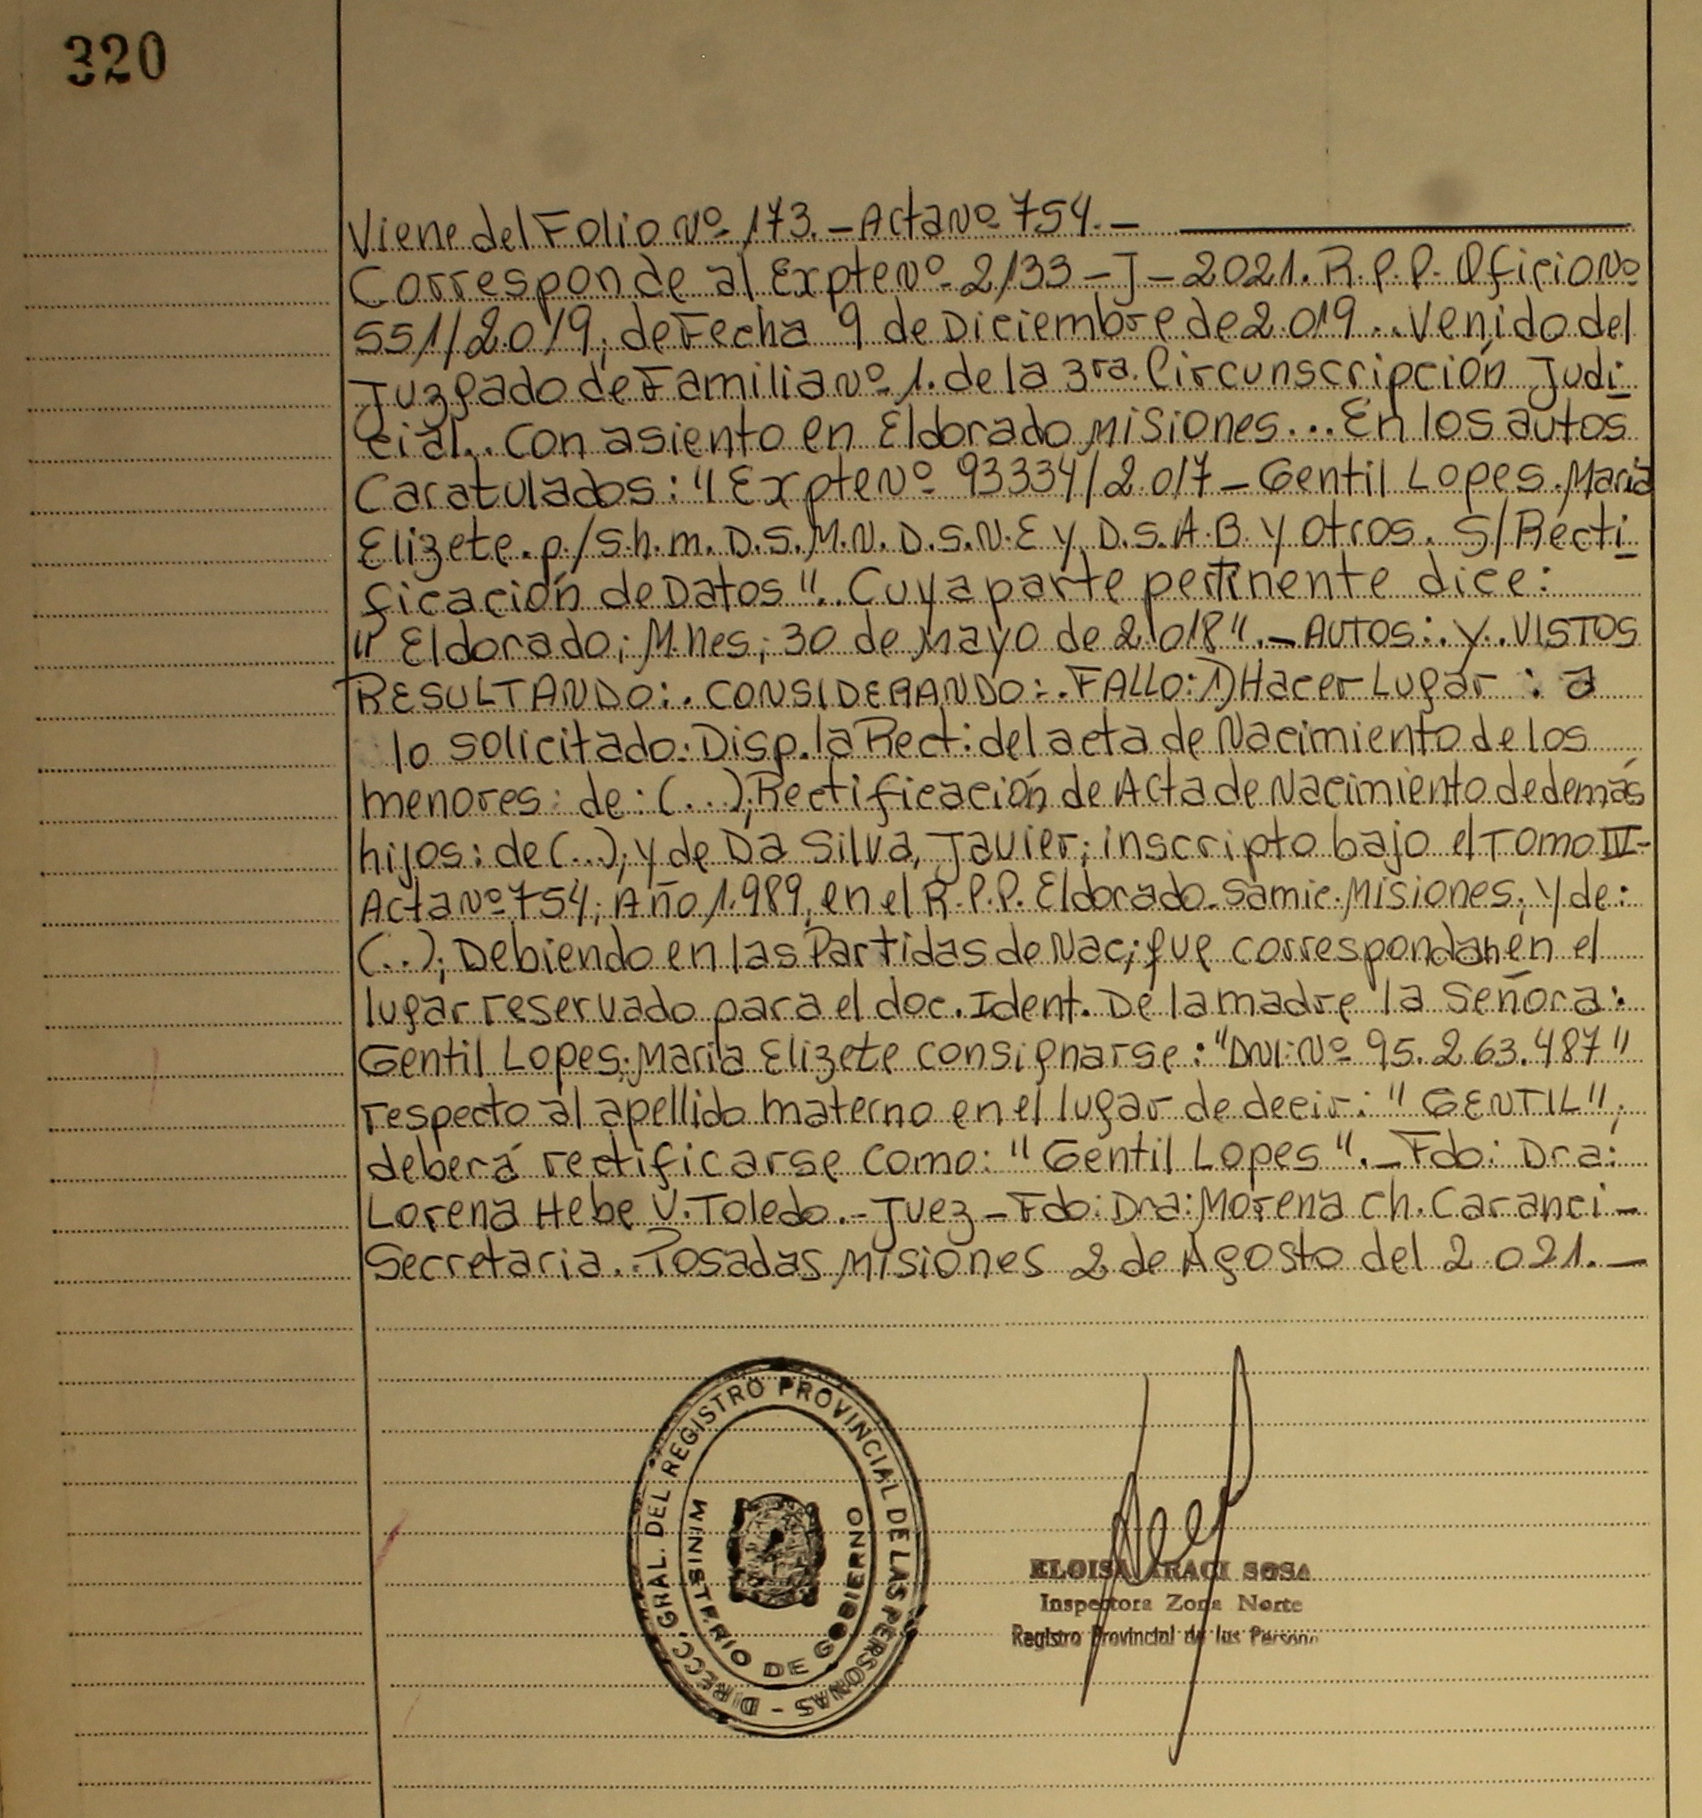 320
Viene del Folio Nº 173.- Acta Nº 754.-
Corresponde al Expte Nº 2133-J-2021. R.P.P. Oficio Nº
551/2019; de Fecha 9 de Diciembre de 2.019.. Venido del
Juzgado de Familia Nº 1. de la 3ra. Circunscripción Judi-
cial.. Con asiento en Eldorado Misiones... En los autos
Caratulados: "Expte Nº 93334/2.017- Gentil Lopes. Maria
Elizete. p./S.h.m. D.S.M.N. D.S.N.E y D.S.A.B. y otros. S/Recti-
ficación de Datos". Cuya parte pertinente dice:
" Eldorado; M.nes; 30 de Mayo de 2.018".- AUTOS:. Y.. VISTOS
RESULTANDO:. CONSIDERANDO:. FALLO: 1) Hacer Lugar : a
lo solicitado: Disp. la Rect: del acta de Nacimiento de los
menores: de: (...); Rectificación de Acta de Nacimiento de demás
hijos: de (...); y de Da Silva, Javier; inscripto bajo el Tomo IV-
Acta Nº 754; Año 1.989, en el R.P.P. Eldorado. Samic. Misiones; y de:
(..); Debiendo en las Partidas de Nac; que correspondan en el
lugar reservado para el doc. Ident. De la madre la Señora:
Gentil Lopes; Maria Elizete consignarse: "DNI: Nº 95.263.487"
respecto al apellido materno en el lugar de decir: "GENTIL";
deberá rectificarse como: "Gentil Lopes".- Fdo: Dra:
Lorena Hebe V. Toledo.- Juez - Fdo: Dra: Morena Ch. Caranci-
Secretaria.. Posadas Misiones 2 de Agosto del 2.021.-
DIRECC. GRAL. DEL REGISTRO PROVINCIAL DE LAS PERSONAS -
MINISTERIO DE GOBIERNO
ELOISA ARACI SOSA
Inspectora Zona Norte
Registro Provincial de las Persona